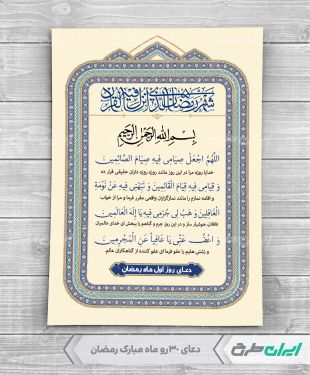 شهر رمضان الذی انزل فیه القرآن
بسم الله الرحمن الرحیم
اللَّهُمَّ اجْعَلْ صِیَامِی فِیهِ صِیَامَ الصَّائِمِینَ
خدایا روزه مرا در این روز مانند روزه روزه داران حقیقی قرار ده
وَ قِیَامِی فِیهِ قِیَامَ الْقَائِمِینَ وَ نَبِّهْنِی فِیهِ عَنْ نَوْمَةِ
و اقامه نمازم را مانند نمازگزاران واقعی مقرر فرما و مرا از خواب
الْغَافِلِینَ وَ هَبْ لِی جُرْمِی فِیهِ یَا إِلَهَ الْعَالَمِینَ
غافلان هوشیار ساز و در این روز جرم و گناهم را ببخش ای خدای عالمیان
وَ اعْفُ عَنِّی یَا عَافِیاً عَنِ الْمُجْرِمِینَ
و زشتی هایم را عفو فرما ای عفو کننده از گناهکاران عالم
دعای روز اول ماه رمضان
دعای ۳۰ رو ماه مبارک رمضان
ایران طرح